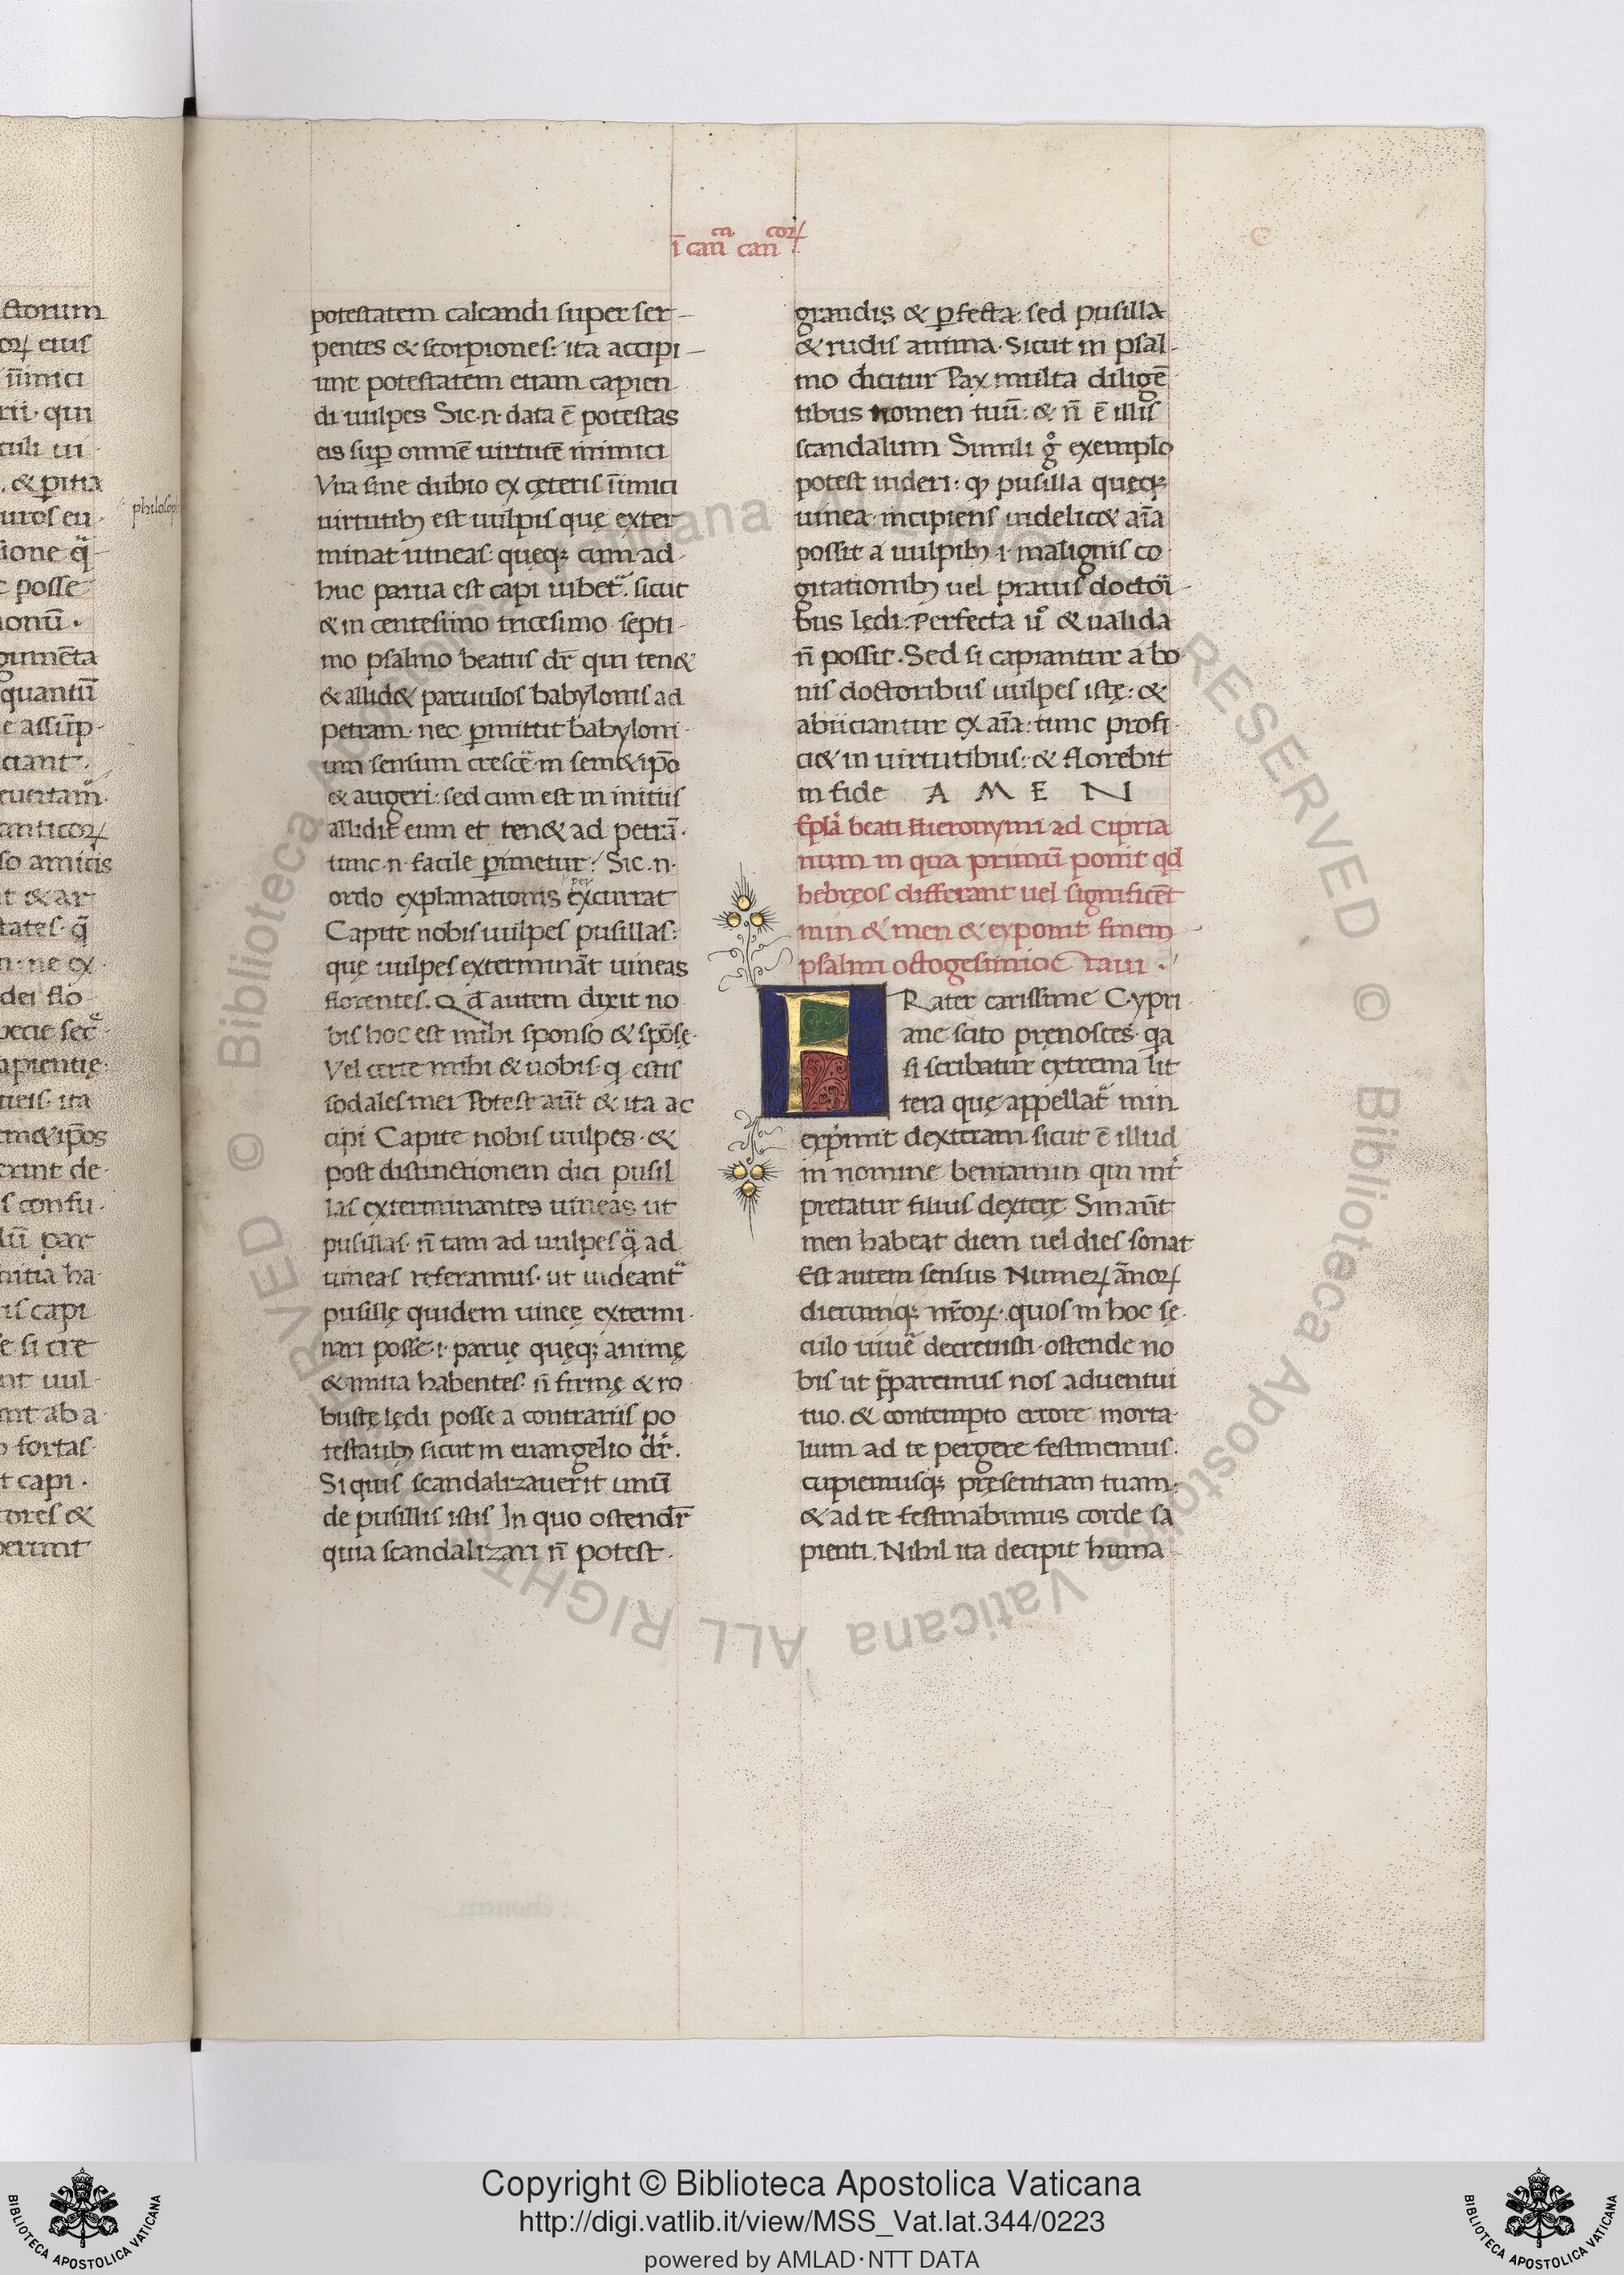 ī can͞ cn can͞ coꝝ
C
potestatem calcandi super ser-
pentes & scorpiones: ita accipi-
unt potestatem etiam capien
di uulpes Sic .n. data ē potestas
eis suꝑ omnē uirtutē inimici
Vna sine dubio ex cęteris īimici
uirtutibꝫ est uulpis quę exter
minat uineas: quęqꝫ cum ad
huc parua est capi iubet᷑. sicut
& in centesimo tricesimo septi
mo psalmo beatus dr̄ qui ten&
& allid& paruulos babylonis ad
petram. nec ꝑmittit babyloni
um sensum crescē in sem&ip̄o
& augeri: sed cum est in initiis
allidit eum et ten& ad petrā.
tunc .n. facile ꝑimetur. Sic .n.
per
ordo explanationis excurrat
Capite nobis uulpes pusillas:
quę uulpes extermināt uineas
florentes. Qd̄ autem dixit no
bis hoc est mihi sponso & spōsę.
Vel certe mihi & uobis. q estis
sodales mei Potest aūt & ita ac
cipi Capite nobis uulpes. &
post distinctionem dici pusil
las exterminantes uineas ut
pusillas. n̄ tam ad uulpes q̈ ad
uineas referamus. ut uideant᷑
pusillę quidem uineę extermi
nari posse .i. paruę quęqꝫ animę
& initia habentes. n̄ firmę & ro
bustę lędi posse a contrariis po
testatibꝫ sicut in euangelio dr̄.
Si quis scandalizauerit unū
de pusillis istis In quo ostendr̄
quia scandalizari n̄ potest.
grandis & ꝑfecta: sed pusilla
& rudis anima. Sicut in psal
mo dicitur Pax multa diligē
tibus nomen tuū: & n̄ ē illis
scandalum Simili gͦ exemplo
potest uideri: ꝙ pusilla quęqꝫ
uinea incipiens uidelic& aīa
possit a uulpibꝫ .i. malignis co
gitationibꝫ uel prauis doctoi
bus lędi. Perfecta uͦ & ualida
n̄ possit. Sed si capiantur a bo
nis doctoribus uulpes istę: &
abiiciantur ex aīa: tunc profi
ci& in uirtutibus: & florebit
in fide A M E N
Epla beati Hieronymi ad Cipria
num in qua primū ponit qd
hebręos differant uel significēt
min & men & exponit finem
psalmi octogesiminoni
FRater carissime Cypri
ane scito pręnosces. qa
si scribatur extrema lit
tera quę appellat᷑ min
exp̍mit dexteram sicut ē illud
in nomine beniamin qui int᷑
pretatur filius dexterę Sin aūt
men habeat diem uel dies sonat
Est autem sensus Numeꝝ ānoꝝ
dierumqꝫ nr̄oꝝ. quos in hoc sę
culo uiuē decreuisti. ostende no
bis ut p̄paremus nos aduentui
tuo. & contempto errore morta
lium ad te pergere festinemus.
cupiemusqꝫ pręsentiam tuam:
& ad te festinabimus corde sa
pienti. Nihil ita decipit huma
Copyright © Biblioteca Apostolica Vaticana
http://digi.vatlib.it/view/MSS_Vat.lat.344/0223
powered by AMLAD·NTT DATA
BIBLIOTECA APOSTOLICA VATICANA
BIBLIOTECA APOSTOLICA VATICANA